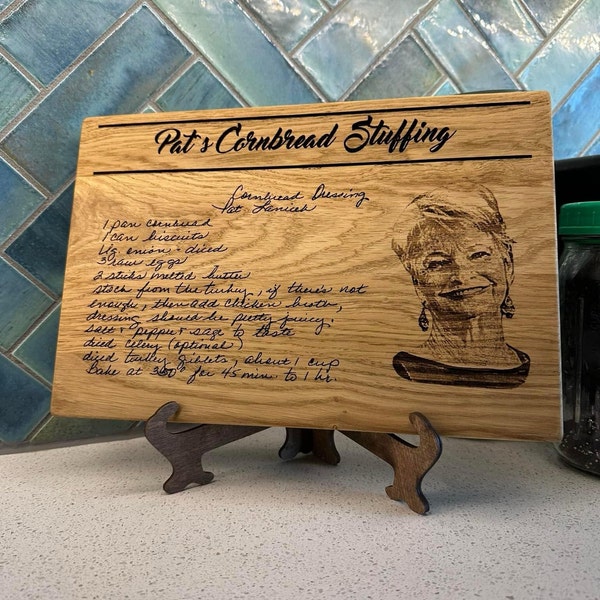 Pat's Cornbread Stuffing
Cornbread Dressing
Pat Lanich
1 pan cornbread
1 can biscuits
Lg onion - diced
3 raw eggs
2 sticks melted butter
stock from the turkey, if there's not
enough, then add chicken broth,
dressing should be pretty juicy.
salt & pepper & sage to taste
diced celery (optional)
diced turkey giblets, about 1 cup
Bake at 350° for 45 min. to 1 hr.